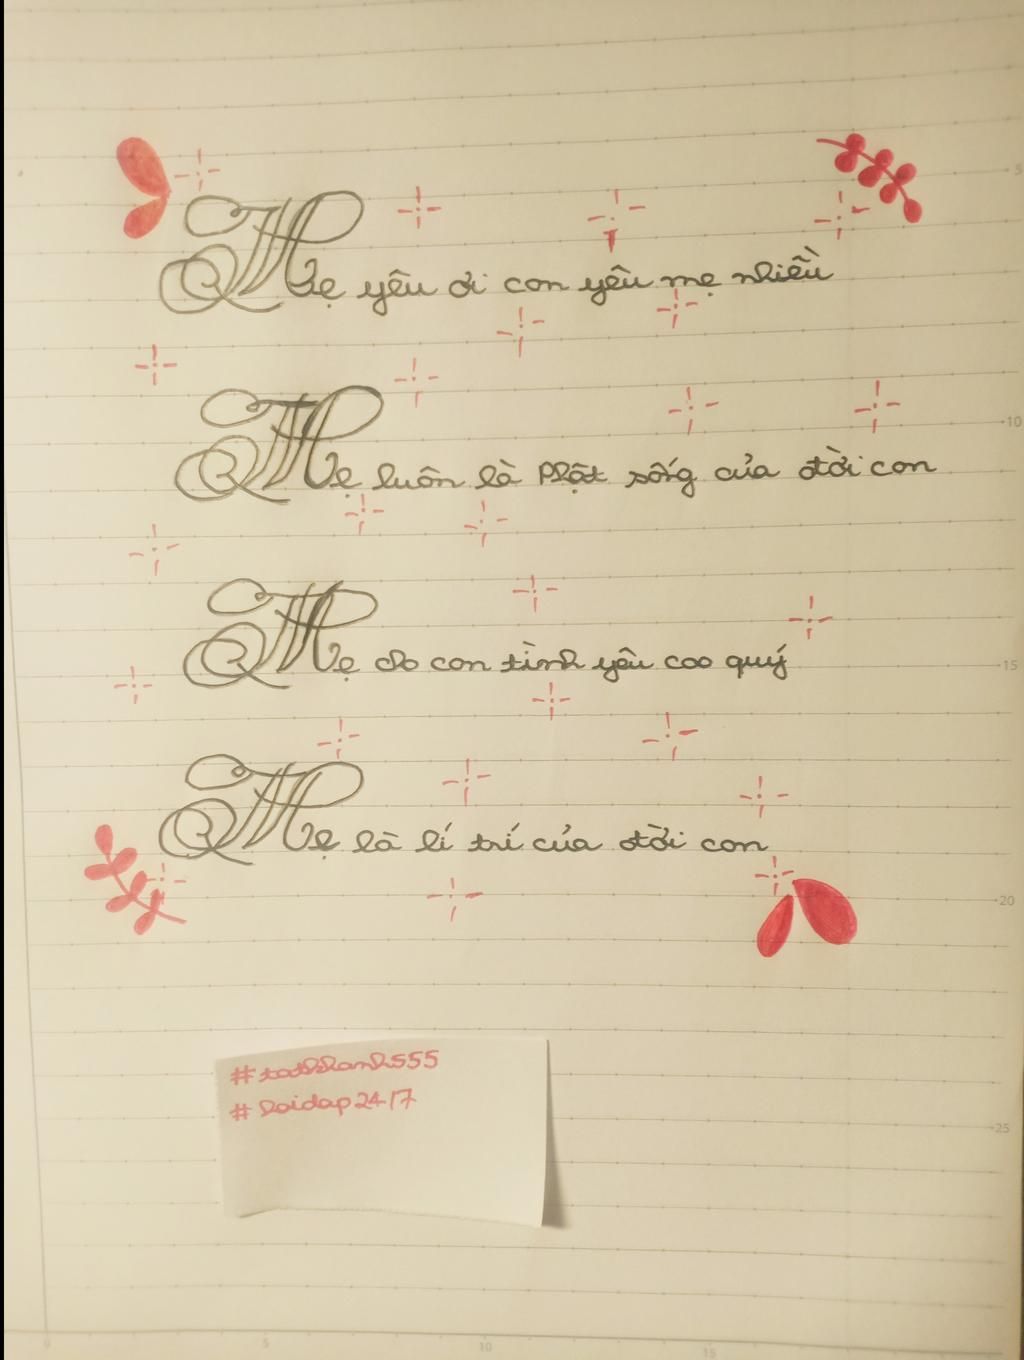 Mẹ yêu ơi con yêu mẹ nhiều
Mẹ luôn là Phật sống của đời con
Mẹ cho con tình yêu cao quý
Mẹ là lí trí của đời con
#hoidap247
5
10
15
20
25
0 5 10 15